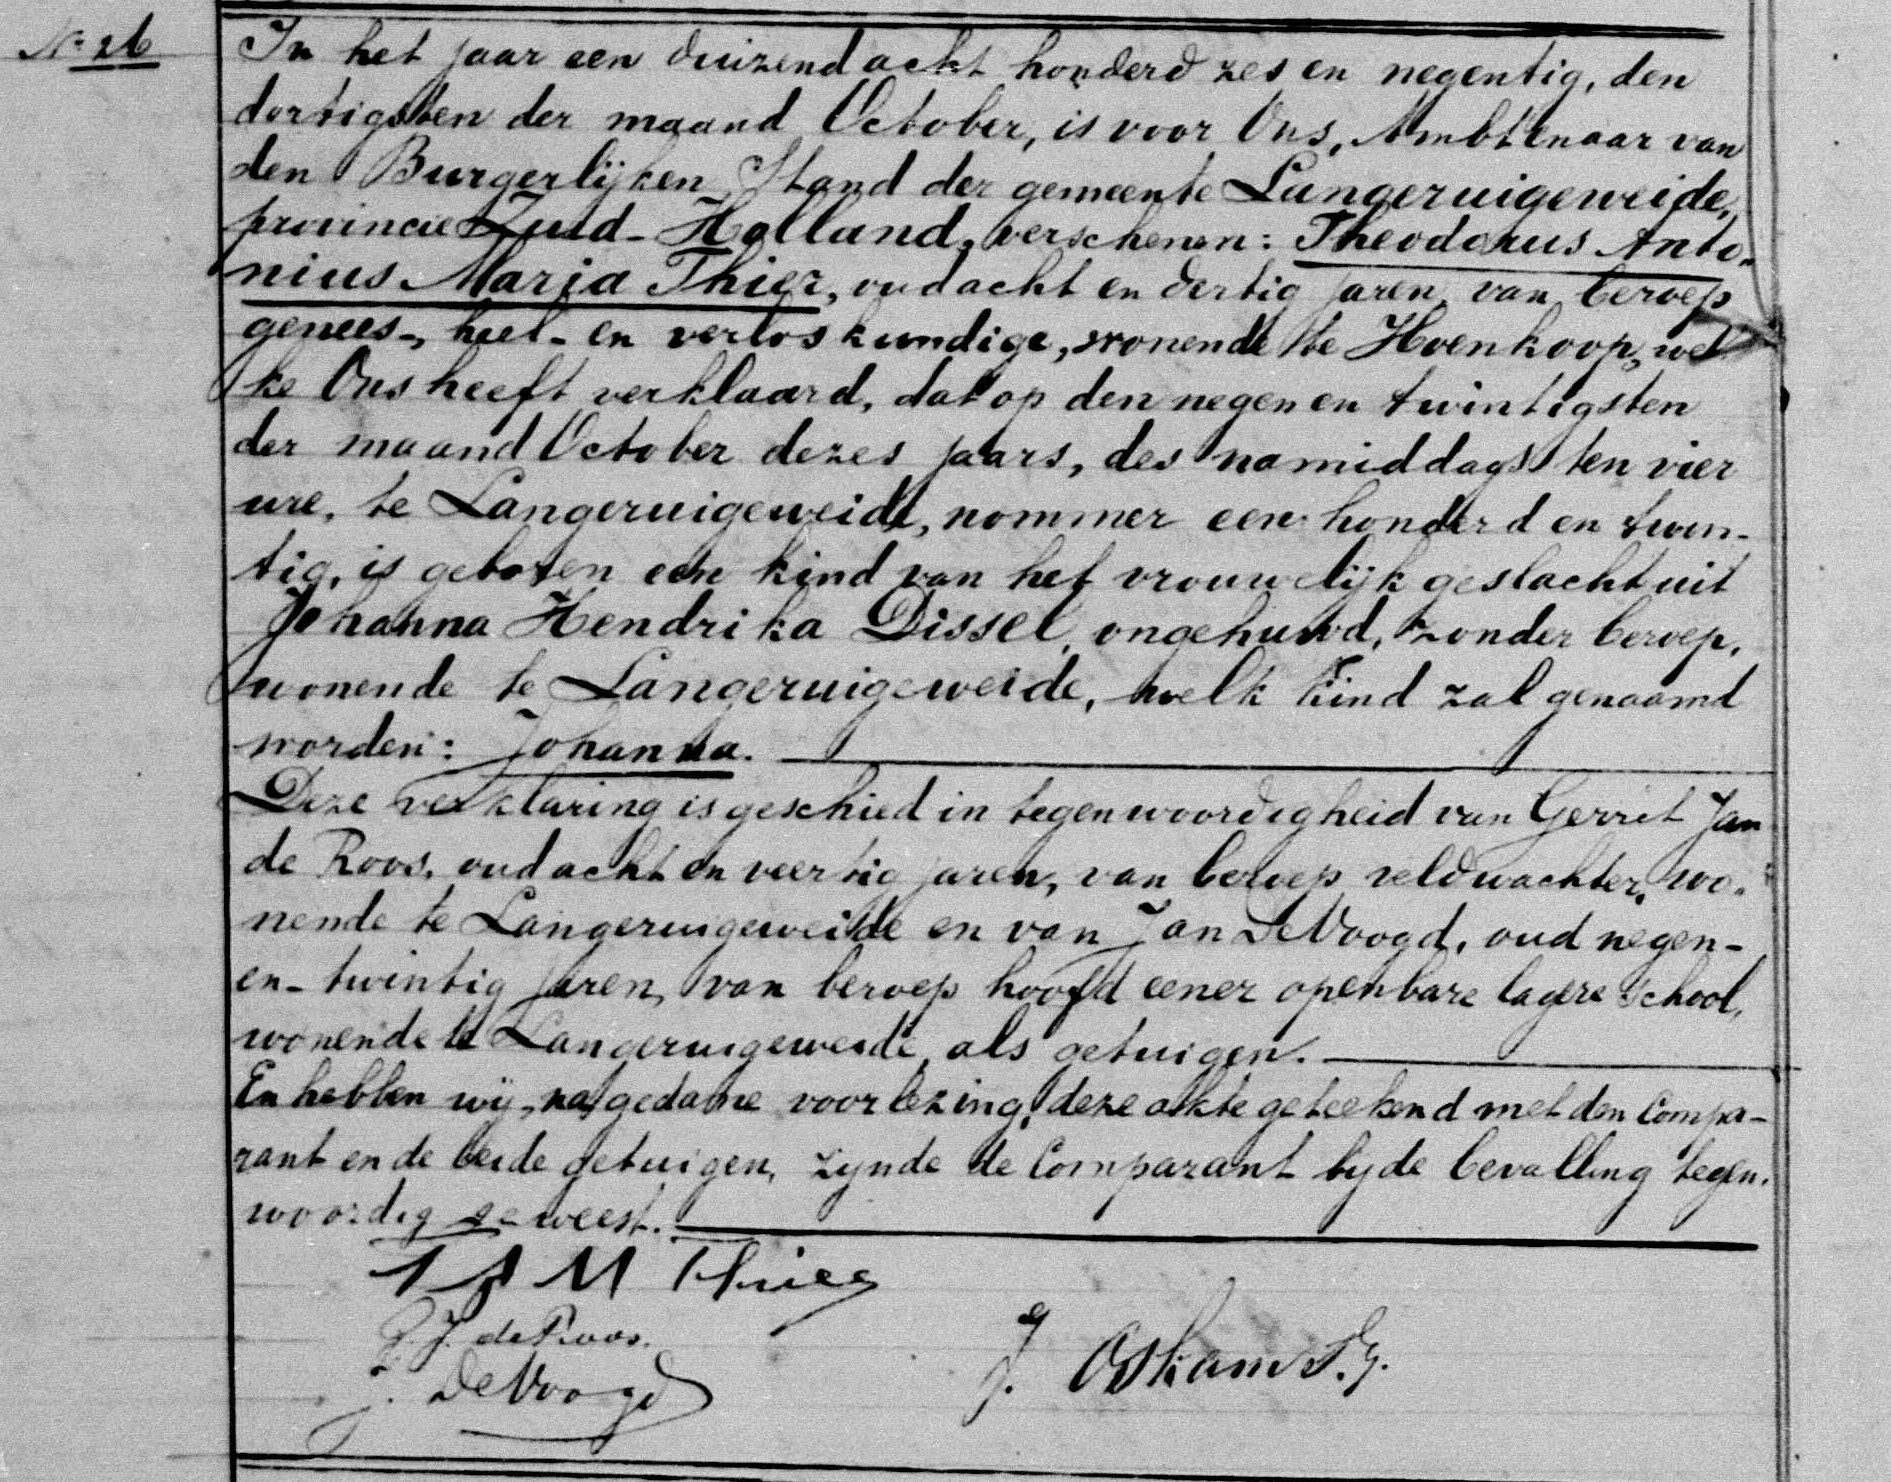 No 26
In het jaar een duizend acht honderd zes en negentig, den
dertigsten der maand October, is voor Ons, Ambtenaar van
den Burgerlijken Stand der gemeente Langeruigeweide,
provincie Zuid-Holland, verschenen: Theodorus Anto-
nius Maria Thier, oud acht en dertig jaren, van beroep
genees-, heel- en verloskundige, wonende te Hoenkoop, wel-
ke Ons heeft verklaard, dat op den negen en twintigsten
der maand October dezes jaars, des namiddags ten vier
ure, te Langeruigeweide, nommer een honderd en twin-
tig, is geboren een kind van het vrouwelijk geslacht uit
Johanna Hendrika Dissel, ongehuwd, zonder beroep,
wonende te Langeruigeweide, welk kind zal genaamd
worden: Johanna.
Deze verklaring is geschied in tegenwoordigheid van Gerrit Jan
de Roos, oud acht en veertig jaren, van beroep veldwachter, wo-
nende te Langeruigeweide en van Jan De Voogd, oud negen-
en-twintig jaren, van beroep hoofd eener openbare lagere school,
wonende te Langeruigeweide, als getuigen.
En hebben wij, na gedane voorlezing, deze akte geteekend met den Compa-
rant en de beide getuigen, zijnde de Comparant bij de bevalling tegen-
woordig geweest.
T A M Thier
G. J. de Roos.
J. Oskam
J. De Voogd